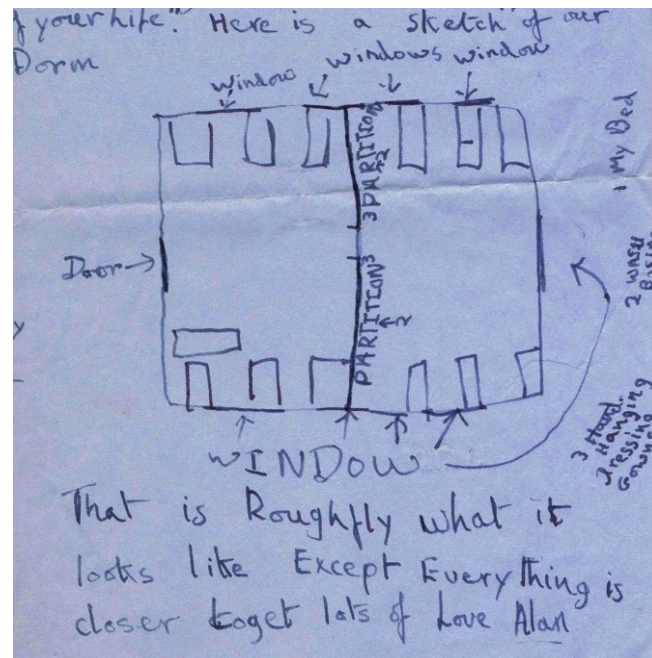 of your life". Here is a sketch of our
Dorm
window windows window
3 PARTITION 2
Door
3
PARTITION
2
1
1 My Bed
2 Wash Basins
3 Hanging Dressing Gowns
WINDOW
That is Roughfly what it
looks like Except Everything is
closer toget lots of Love Alan